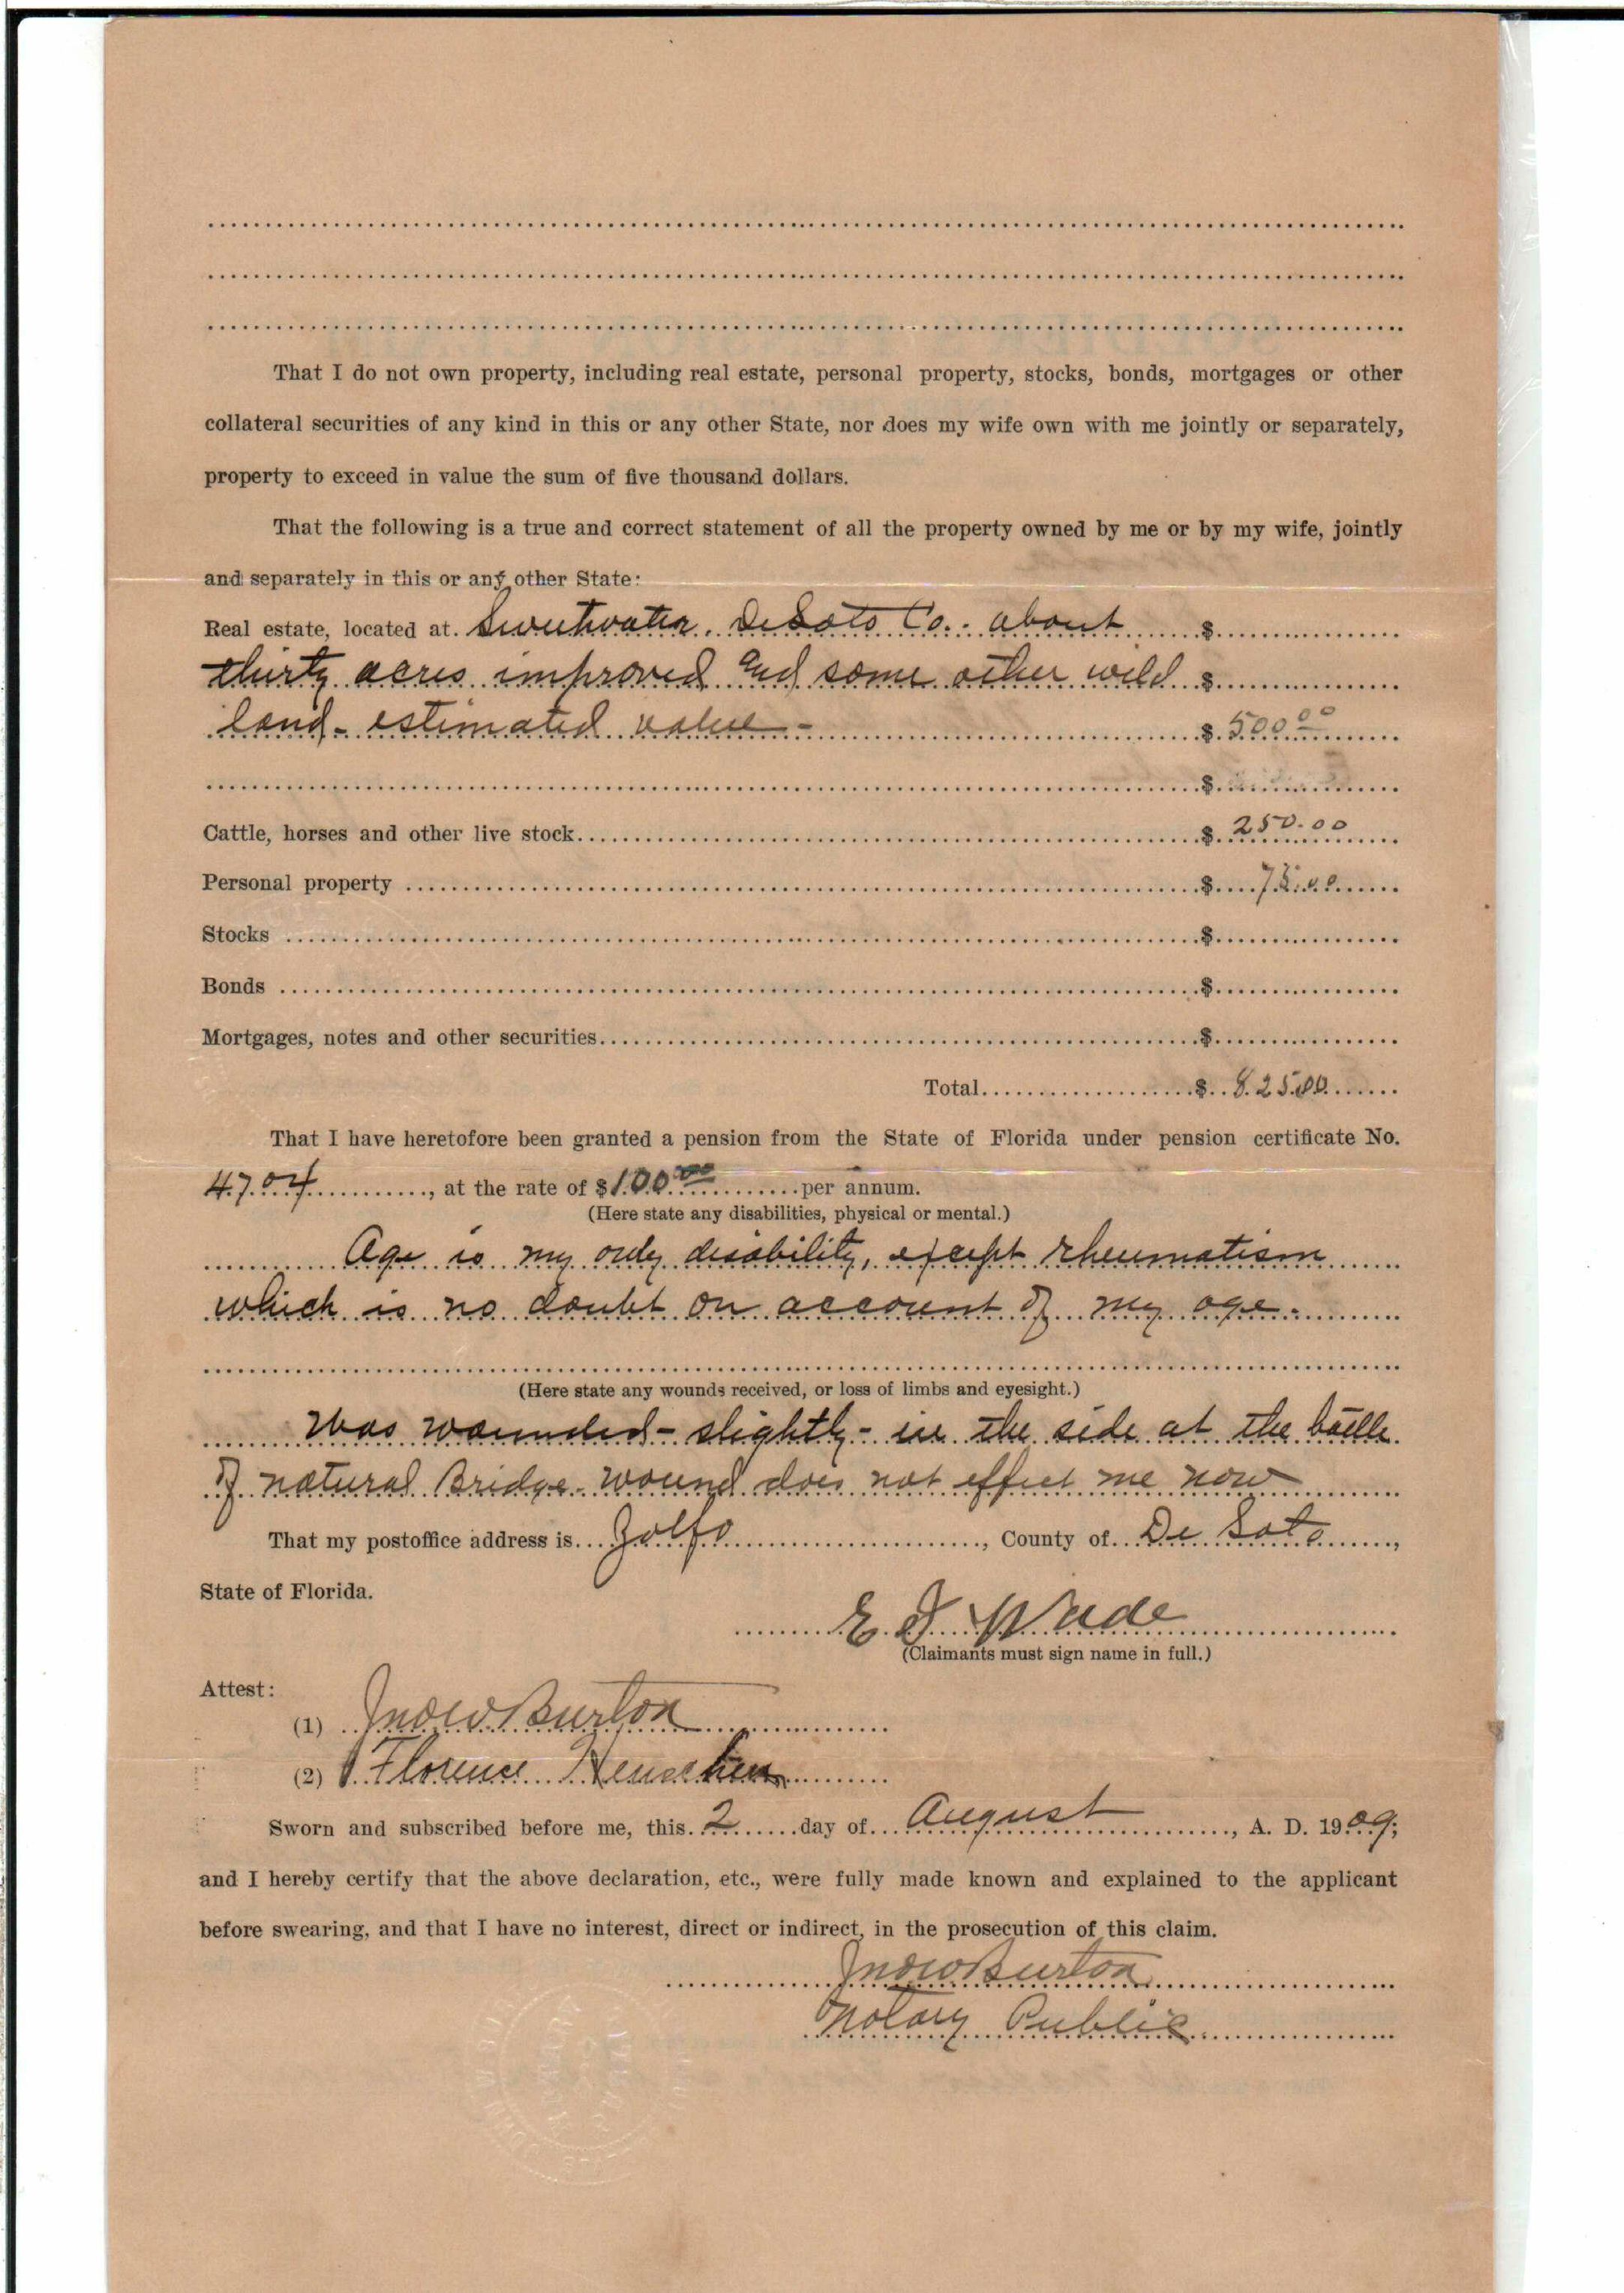 That I do not own property, including real estate, personal property, stocks, bonds, mortgages or other
collateral securities of any kind in this or any other State, nor does my wife own with me jointly or separately,
property to exceed in value the sum of five thousand dollars.
That the following is a true and correct statement of all the property owned by me or by my wife, jointly
and separately in this or any other State:
Real estate, located at Sweetwater, DeSoto Co. about $
thirty acres improved and some other wild $
land - estimated value - $ 500.00
$
Cattle, horses and other live stock $ 250.00
Personal property $ 75.00
Stocks $
Bonds $
Mortgages, notes and other securities $
Total $ 825.00
That I have heretofore been granted a pension from the State of Florida under pension certificate No.
4704, at the rate of $100.00 per annum.
(Here state any disabilities, physical or mental.)
Age is my only disability, except rheumatism
which is no doubt on account of my age.
(Here state any wounds received, or loss of limbs and eyesight.)
Was wounded - slightly - in the side at the battle
of natural Bridge - wound does not effect me now
That my postoffice address is Zolfo, County of De Soto,
State of Florida.
E J Wade
(Claimants must sign name in full.)
Attest:
(1) Jno W Burton
(2) Florence
Sworn and subscribed before me, this 2 day of August, A. D. 1909;
and I hereby certify that the above declaration, etc., were fully made known and explained to the applicant
before swearing, and that I have no interest, direct or indirect, in the prosecution of this claim.
Jno W Burton
Notary Public